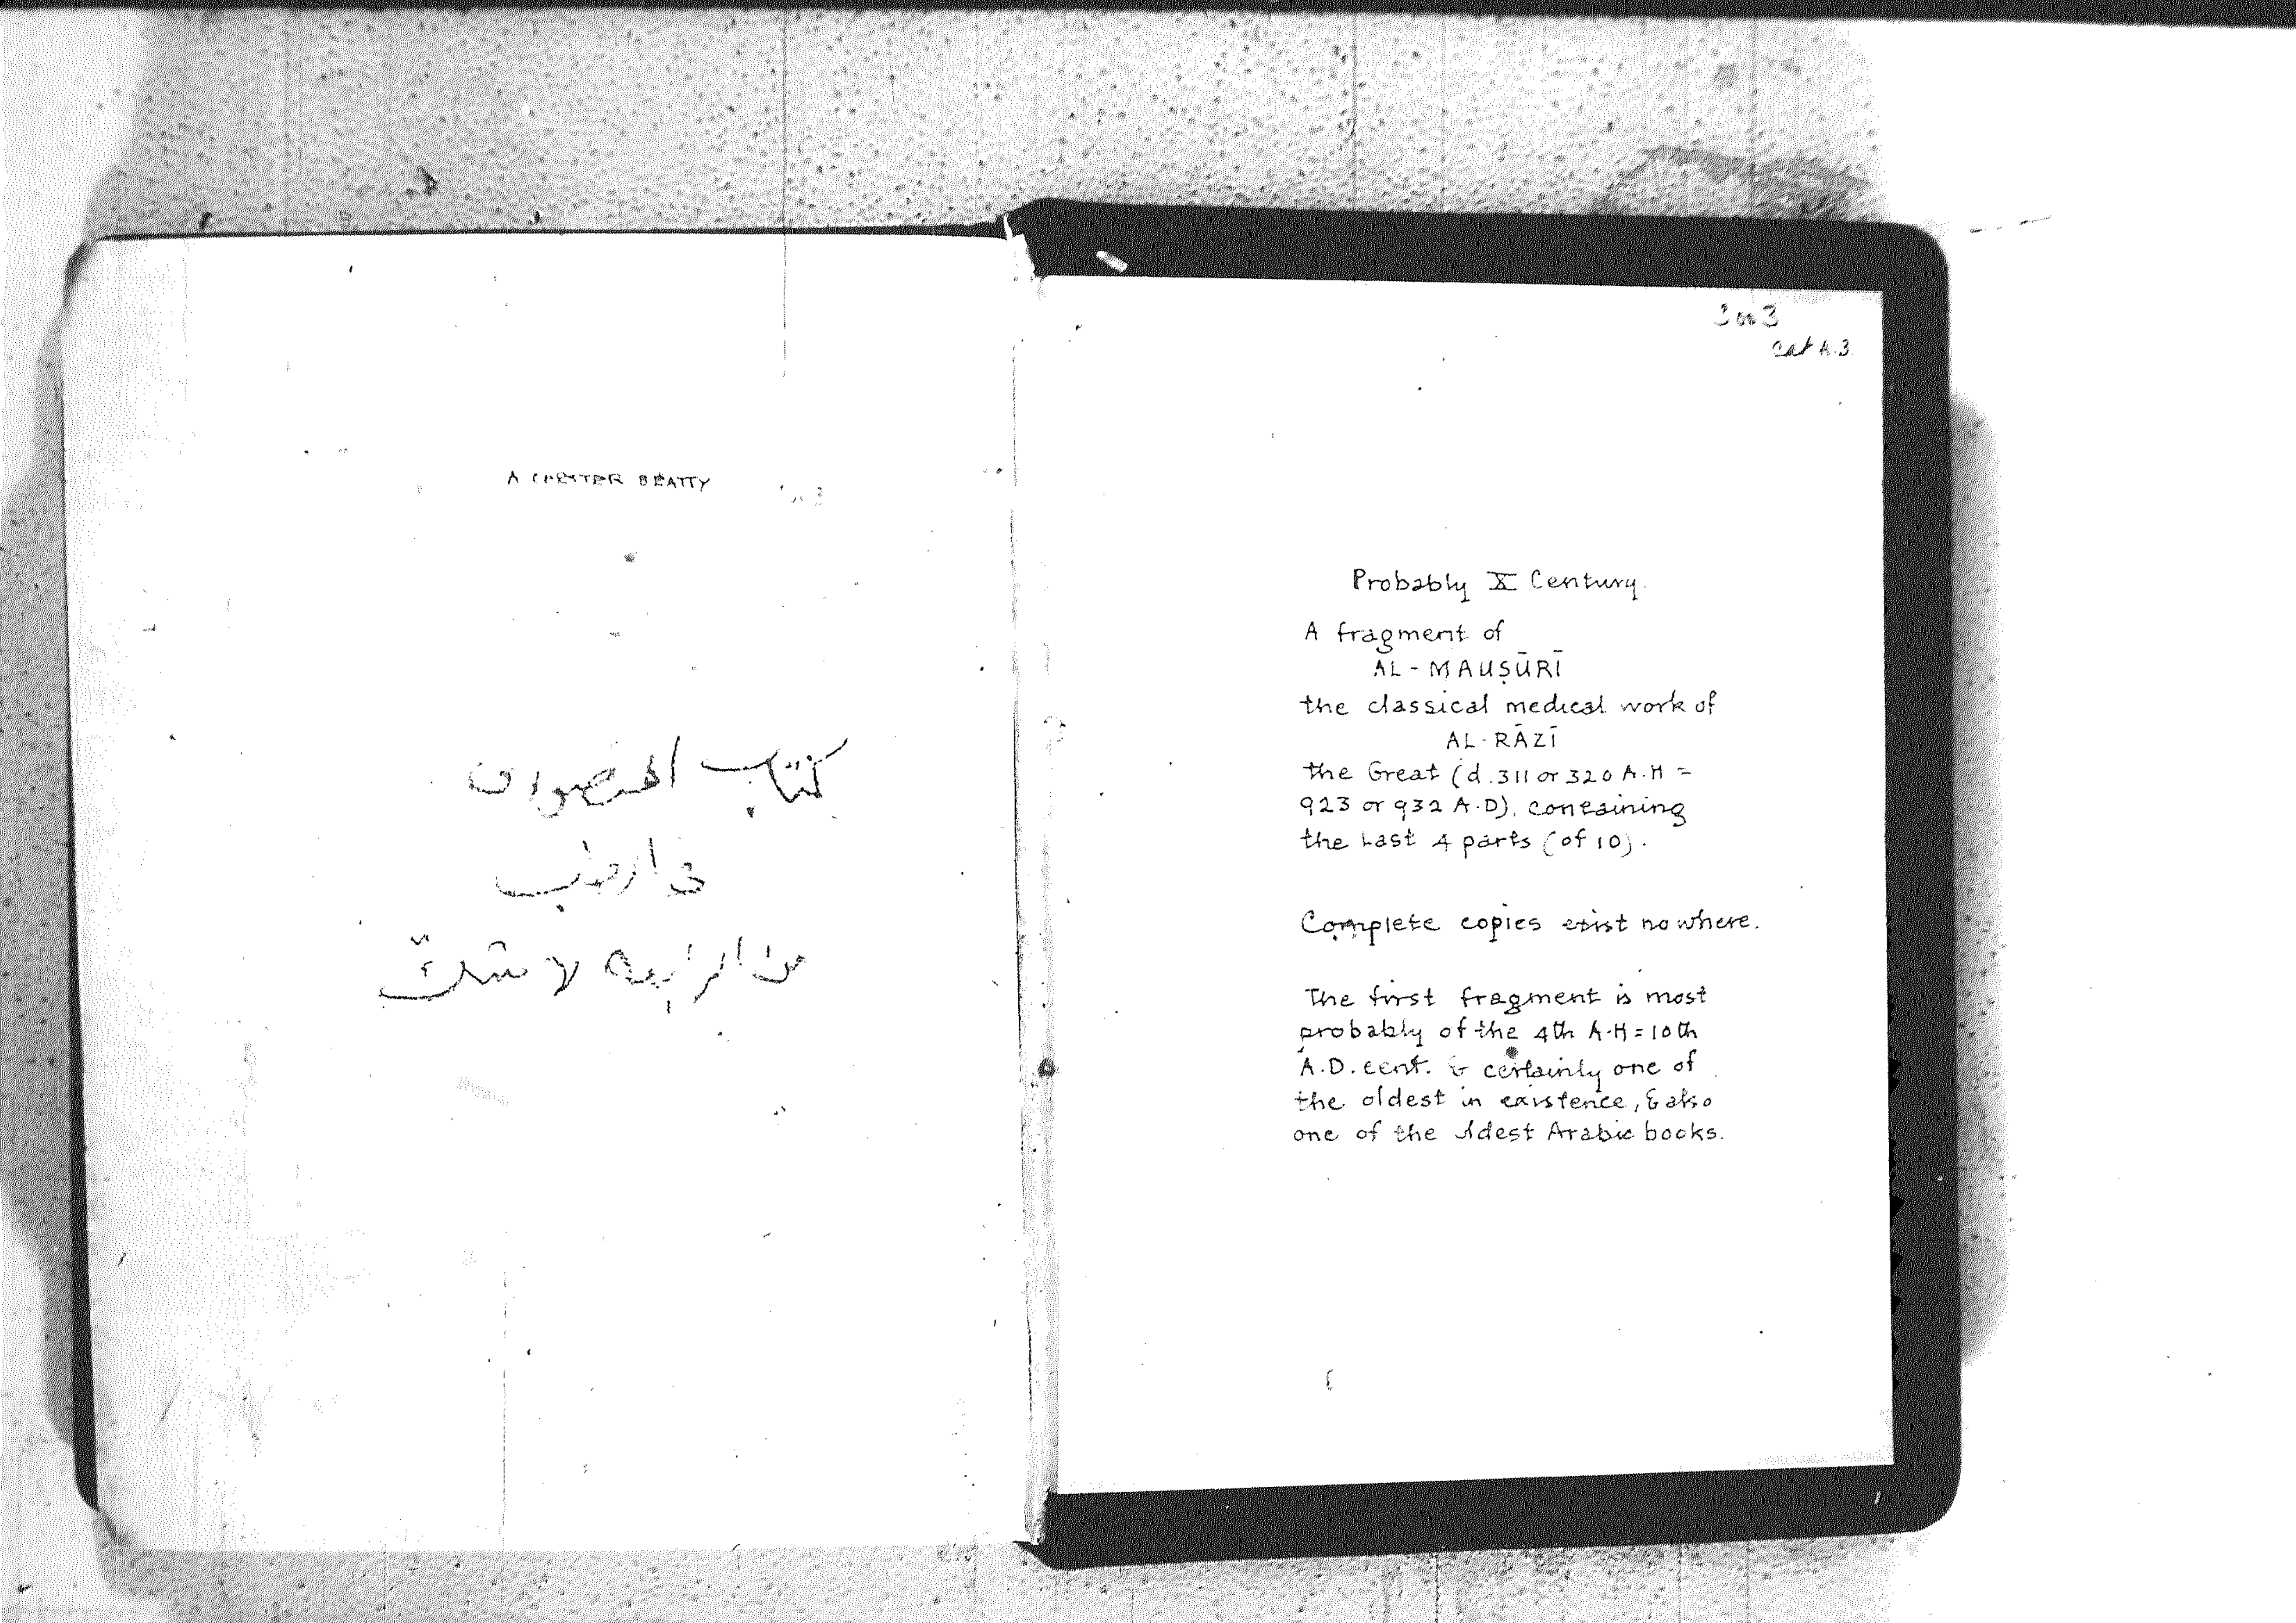 A CHESTER BEATTY
كتاب المنصورى
فى الطب
من الرابعه لا شك
3003
Cat A.3
Probably X Century.
A fragment of
AL-MAUṢŪRĪ
the classical medical work of
AL-RĀZĪ
the Great (d. 311 or 320 A.H =
923 or 932 A.D), containing
the last 4 parts (of 10).
Complete copies exist nowhere.
The first fragment is most
probably of the 4th A.H = 10th
A.D. cent. & certainly one of
the oldest in existence, & also
one of the oldest Arabic books.